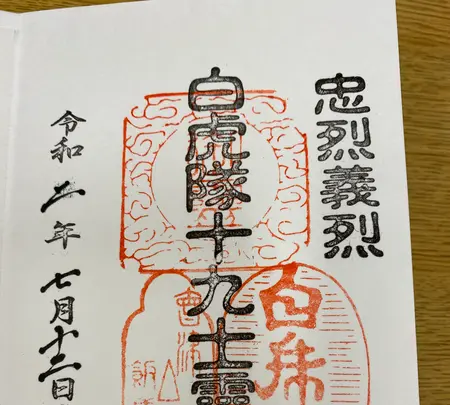 忠烈義烈
白虎隊十九士靈
令和二年七月十二日
會津
飯
白